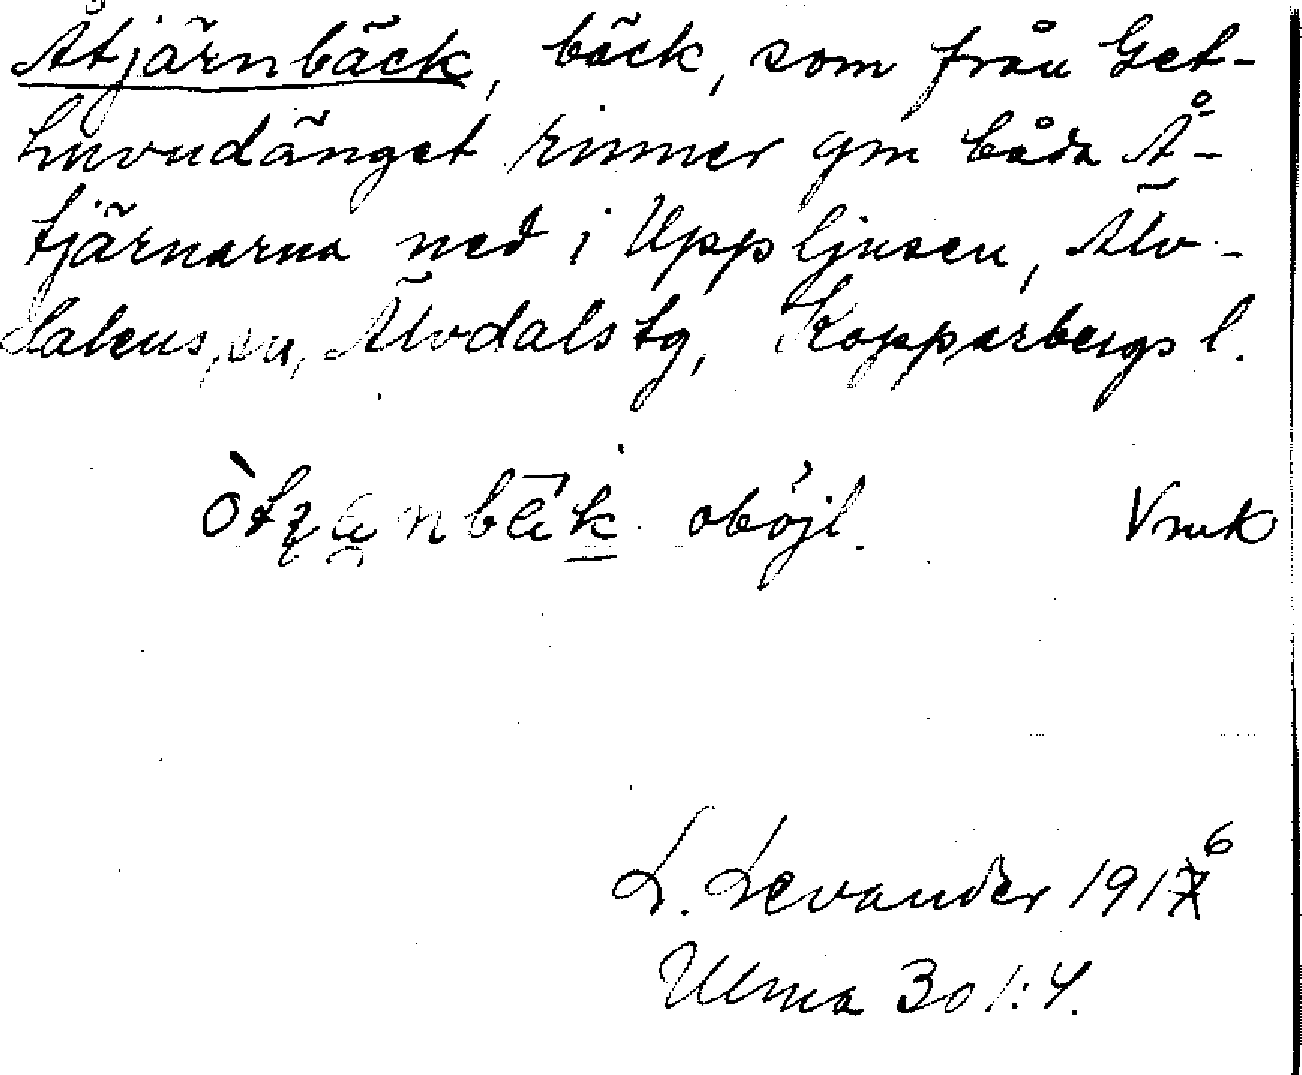 Åtjärnbäck, bäck, som från Get-
huvudänget rinner gm båda Å-
tjärnarna ned i Uppljusen, Älv-
dalens sn, Älvdals tg, Kopparbergs l.
oböjl. Vmk
L. Levander 1916
Ulma 301:4.